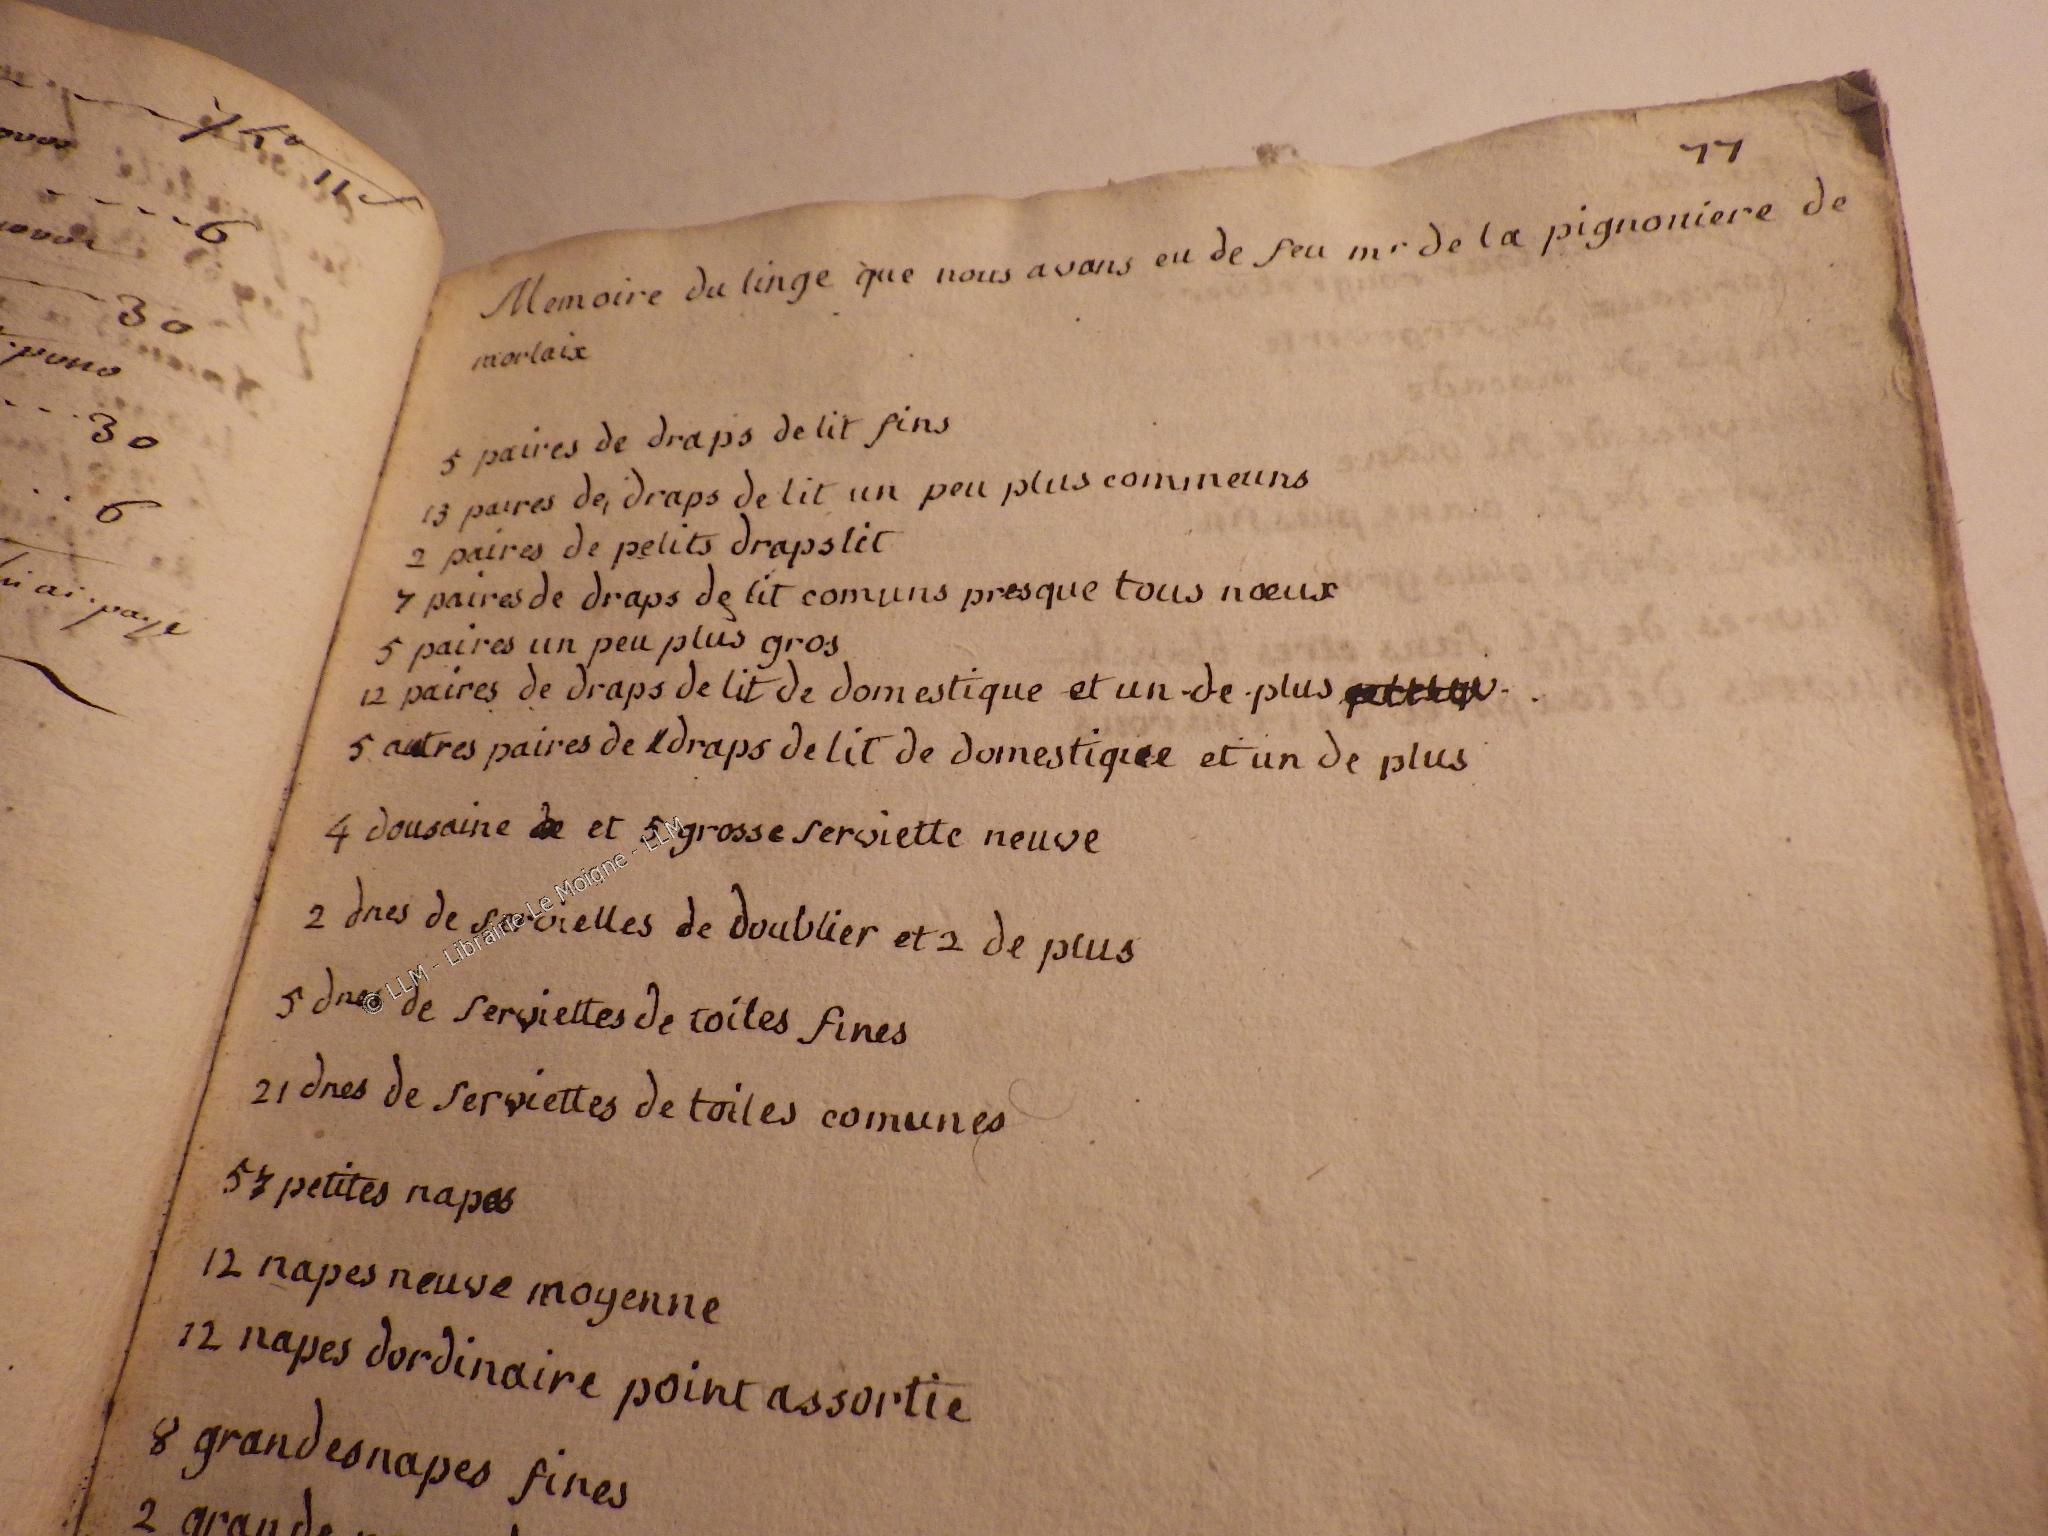 77
Memoire du linge que nous avons eu de feu mr de la pignoniere de
morlaix
5 paires de draps de lit fins
13 paires de draps de lit un peu plus commeuns
2 paires de petits draps lit
7 paires de draps de lit comuns presque tous nœux
5 paires un peu plus gros
12 paires de draps de lit de domestique et un de plus
5 autres paires de draps de lit de domestique et un de plus
4 dousaine et 5 grosse serviette neuve
2 dnes de serviettes de doublier et 2 de plus
5 dnes de serviettes de toiles fines
21 dnes de serviettes de toiles comunes
57 petites napes
12 napes neuve moyenne
12 napes dordinaire point assortie
8 grandes napes fines
2 grande
30
30
6
6
© LLM - Librairie Le Moigne - LLM